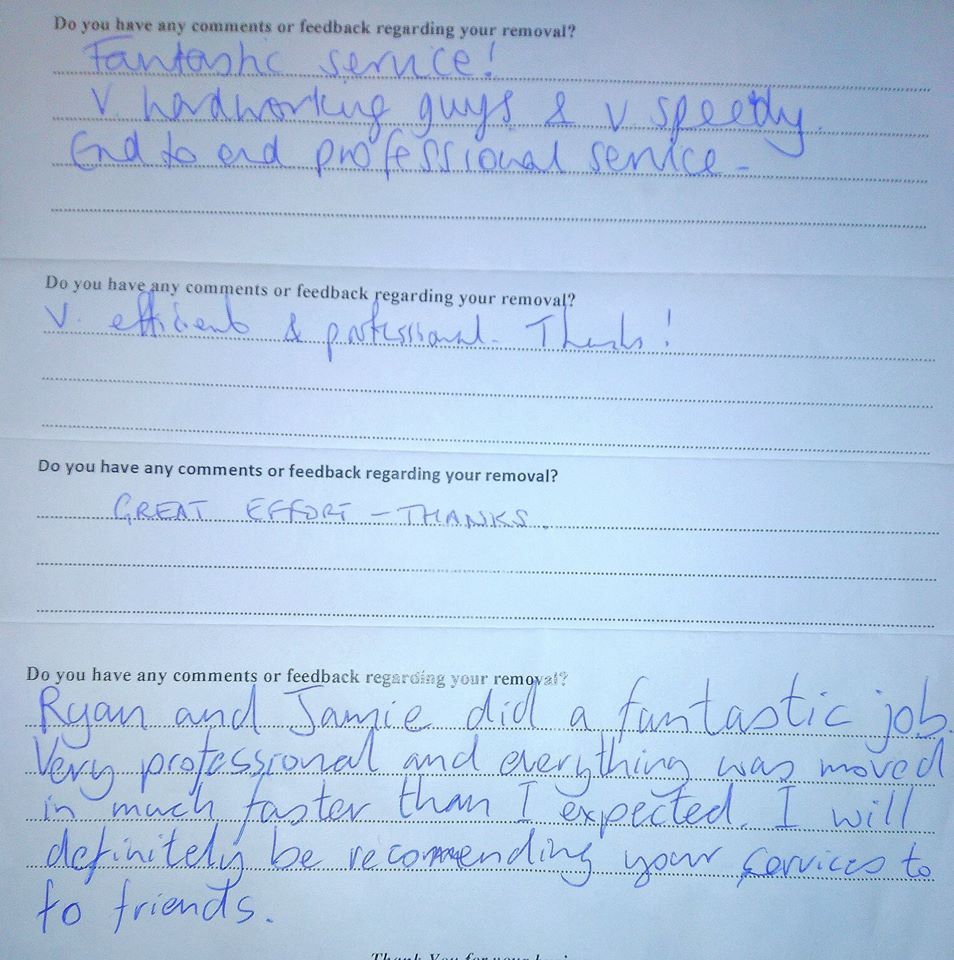 Do you have any comments or feedback regarding your removal?
Fantastic service!
V. hardworking guys & v. speedy.
End to end professional service -
Do you have any comments or feedback regarding your removal?
V. efficient & professional. Thanks!
Do you have any comments or feedback regarding your removal?
GREAT EFFORT - THANKS.
Do you have any comments or feedback regarding your removal?
Ryan and Jamie did a fantastic job.
Very professional and everything was moved
in much faster than I expected. I will
definitely be recommending your services to
to friends.
Thank You for your